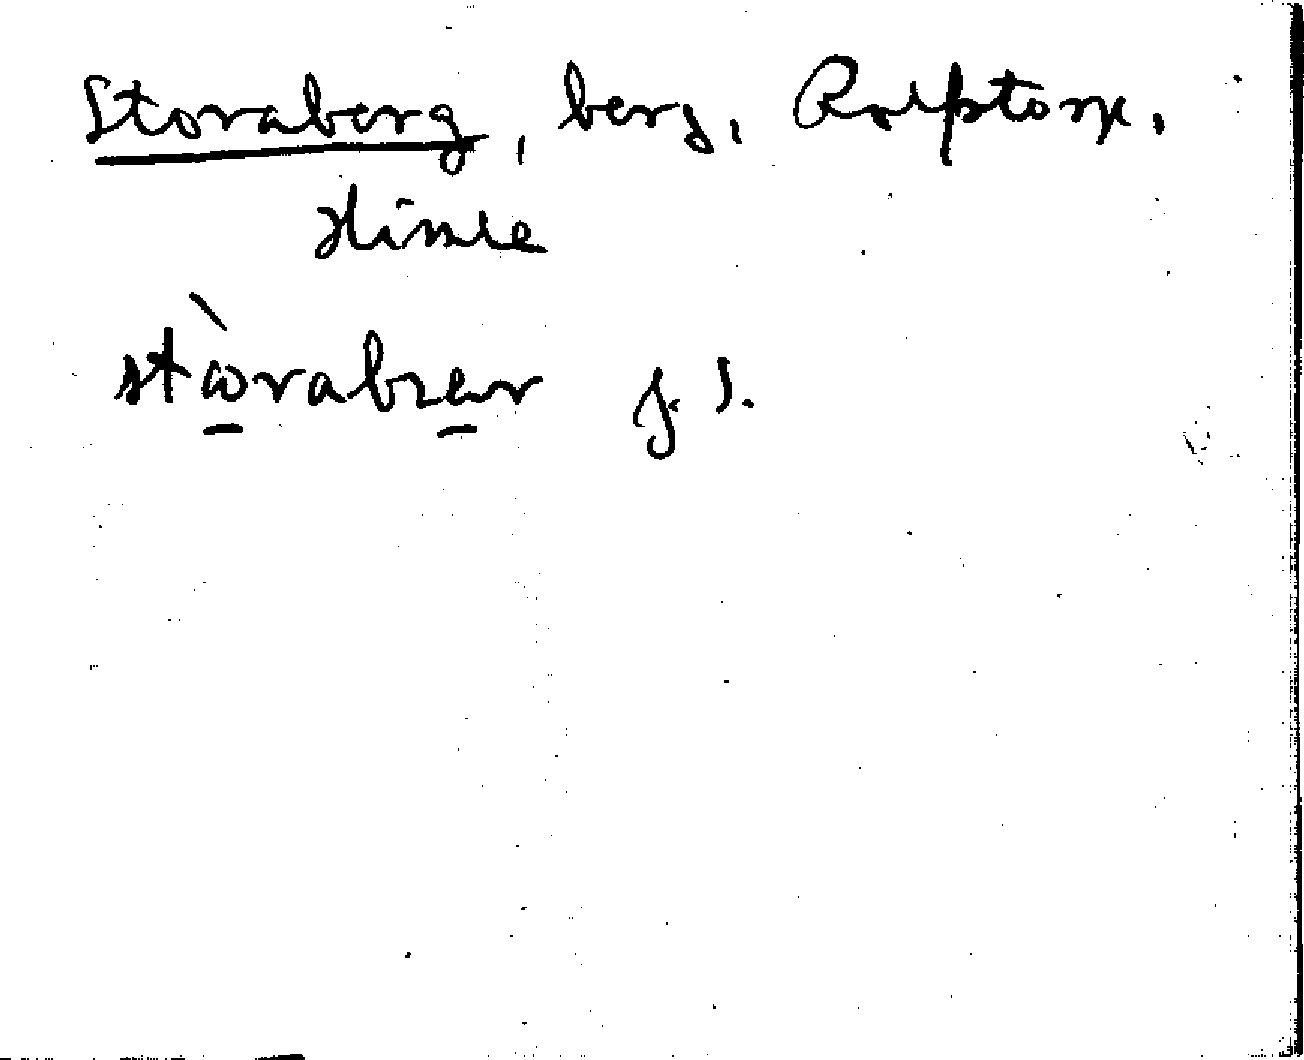 Storaberg, berg, Rolfstorp,
Himle
stòrabær